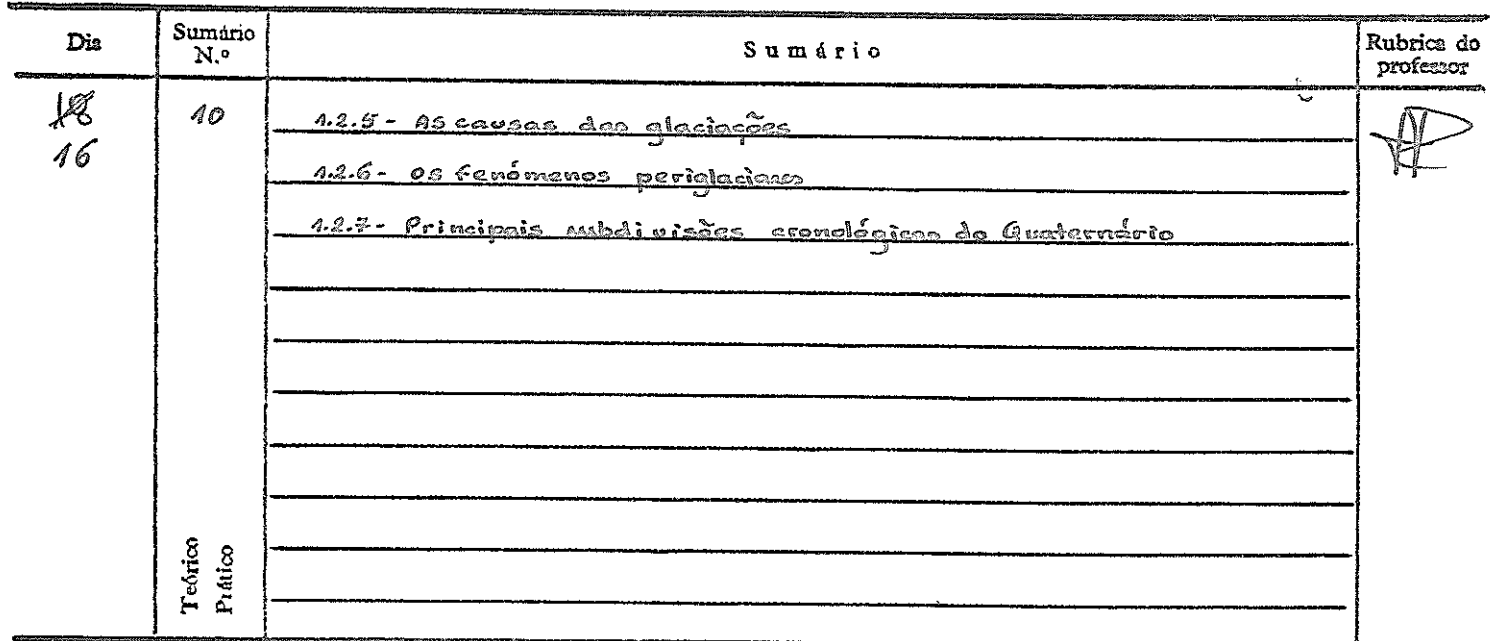 Dia Sumário N.º Sumário Rubrica do professor
18 10 1.2.5 - As causas das glaciações
16
1.2.6 - Os fenómenos periglaciares
1.2.7 - Principais subdivisões cronológicas do Quaternário
Teórico
Prático